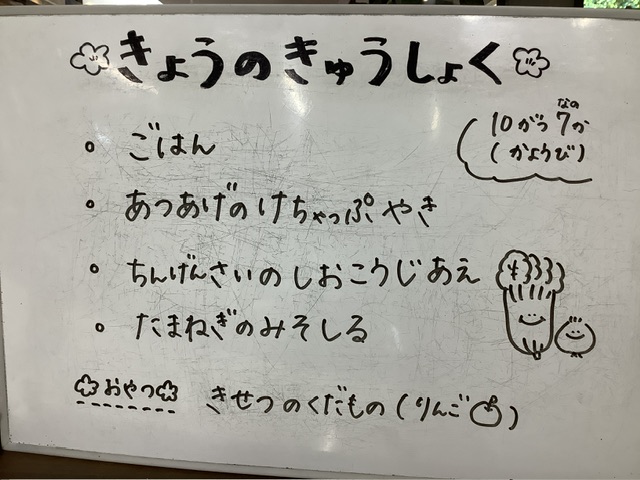 きょうのきゅうしょく
10がつ7か
なの
(かようび)
。ごはん
。あつあげのけちゃっぷやき
。ちんげんさいのしおこうじあえ
。たまねぎのみそしる
おやつ きせつのくだもの(りんご)